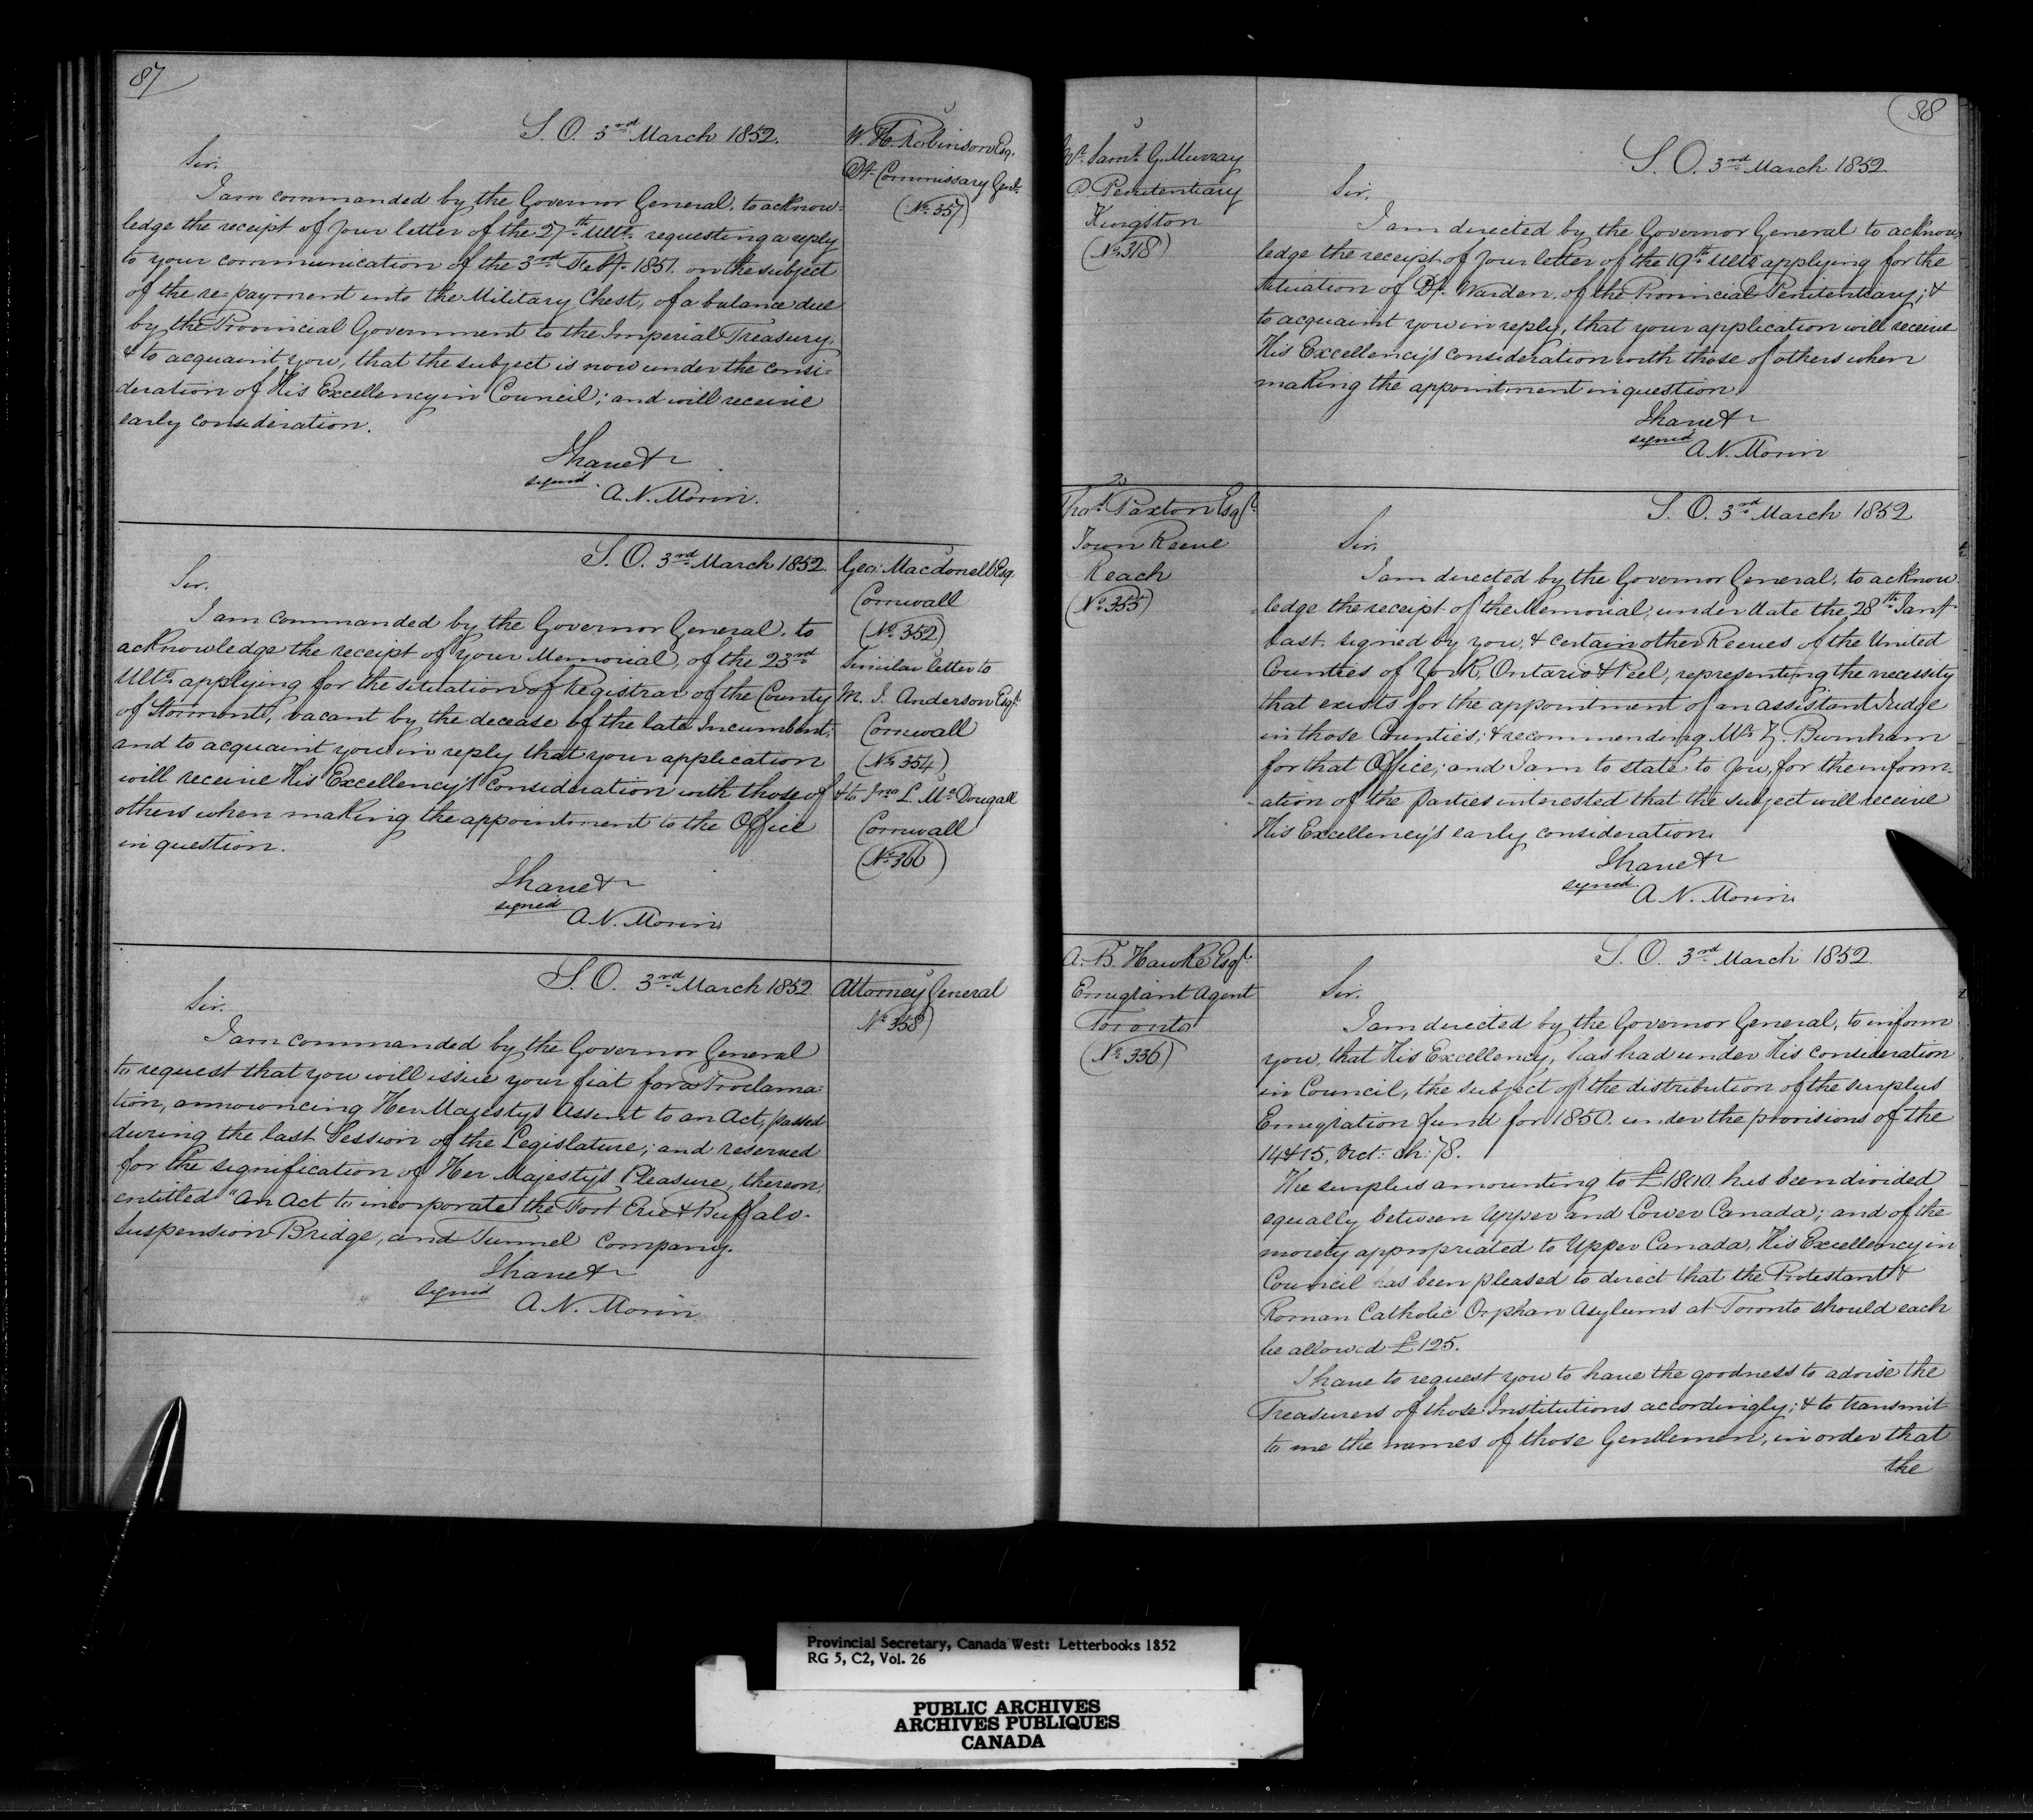 87
S. O. 3rd March 1852.
W. H. Robinson Esq.
Dy. Commissary Genl.
(No. 357)
Sir.
I am commanded by the Governor General, to acknow-
ledge the receipt of your letter of the 27th Ulto. requesting a reply
to your communication of the 3rd Feby. 1851. on the subject
of the re-payment into the Military Chest, of a balance due
by the Provincial Government to the Imperial Treasury,
& to acquaint you, that the subject is now under the consi-
deration of His Excellency in Council; and will receive
early consideration.
I have &
signed
A. N. Morin.
S. O. 3rd March 1852.
Geo: Macdonell Esq.
Cornwall
(No. 352)
Similar letter to
M. I. Anderson Esqr.
Cornwall
(No. 354)
& to Jno L. McDougall
Cornwall
(No. 366)
Sir.
I am commanded by the Governor General, to
acknowledge the receipt of your Memorial, of the 23rd
Ulto. applying for the situation of Registrar of the County
of Stormont, vacant by the decease of the late Incumbent;
and to acquaint you in reply that your application
will receive His Excellency's consideration with those of
others when making the appointment to the Office
in question.
I have &
signed
A. N. Morin
S. O. 3rd March 1852
Attorney General
No. 358)
Sir.
I am commanded by the Governor General
to request that you will issue your fiat for a Proclama-
tion, announcing Her Majesty's Assent to an Act, passed
during the last Session of the Legislature; and reserved
for the signification of Her Majesty's Pleasure, thereon,
entitled "An Act to incorporate the Fort Erie & Buffalo-
Suspension Bridge, and Tunnel Company.
I have &
signed
A. N. Morin
88
S. O. 3rd March 1852
Mr. Saml. G. Murray
P. Penitentiary
Kingston
(No. 318)
Sir,
I am directed by the Governor General to acknow-
ledge the receipt of your letter of the 19th Ulto applying for the
situation of Dy. Warden, of the Provincial Penitentiary; &
to acquaint you in reply, that your application will receive
His Excellency's consideration with those of others when
making the appointment in question.
I have &
signed
A. N. Morin
S. O. 3rd March 1852
Thos. Paxton Esqr.
Town Reeve
Reach
(No. 355)
Sir,
I am directed by the Governor General, to acknow
ledge the receipt of the Memorial, under date the 28th Jany.
last, signed by you, & certain other Reeves of the United
Counties of York, Ontario & Peel, representing the necessity
that exists for the appointment of an assistant Judge
in those Counties; & recommending Mr. Z. Burnham
for that Office; and I am to state to you, for the inform-
-ation of the parties interested that the subject will receive
His Excellency's early consideration.
I have &
signed
A. N. Morin
S. O. 3rd March 1852
A. B. Hawke Esqr.
Emigrant Agent
Toronto
(No. 336)
Sir.
I am directed by the Governor General, to inform
you, that His Excellency, has had under His consideration
in Council, the subject of the distribution of the surplus
Emigration fund for 1850. under the provisions of the
14 & 15, Vict: ch: 78.
The surplus amounting to £1800. has been divided
equally between Upper and Lower Canada; and of the
moiety appropriated to Upper Canada, His Excellency in
Council has been pleased to direct that the Protestant &
Roman Catholic Orphan Asylums at Toronto should each
be allowed £125.
I have to request you to have the goodness to advise the
Treasurers of those Institutions accordingly; & to transmit
to me the names of those Gentlemen, in order that
the
Provincial Secretary, Canada West: Letterbooks 1852
RG 5, C2, Vol. 26
PUBLIC ARCHIVES
ARCHIVES PUBLIQUES
CANADA